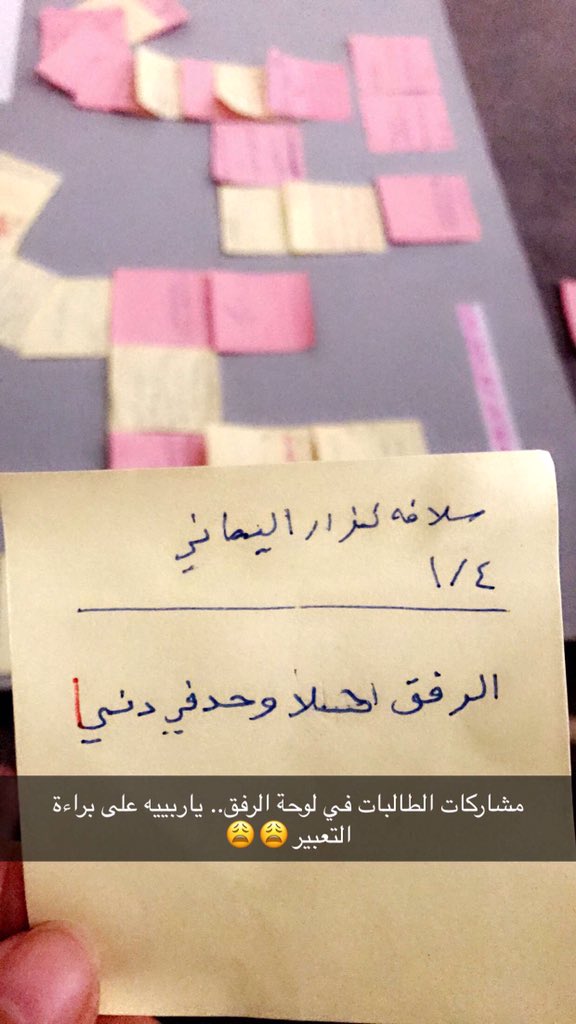 سلافه نزار اليماني
١/٤
الرفق احلا وحدفي دنيا
مشاركات الطالبات في لوحة الرفق.. ياربييه على براءة
التعبير 😩😩